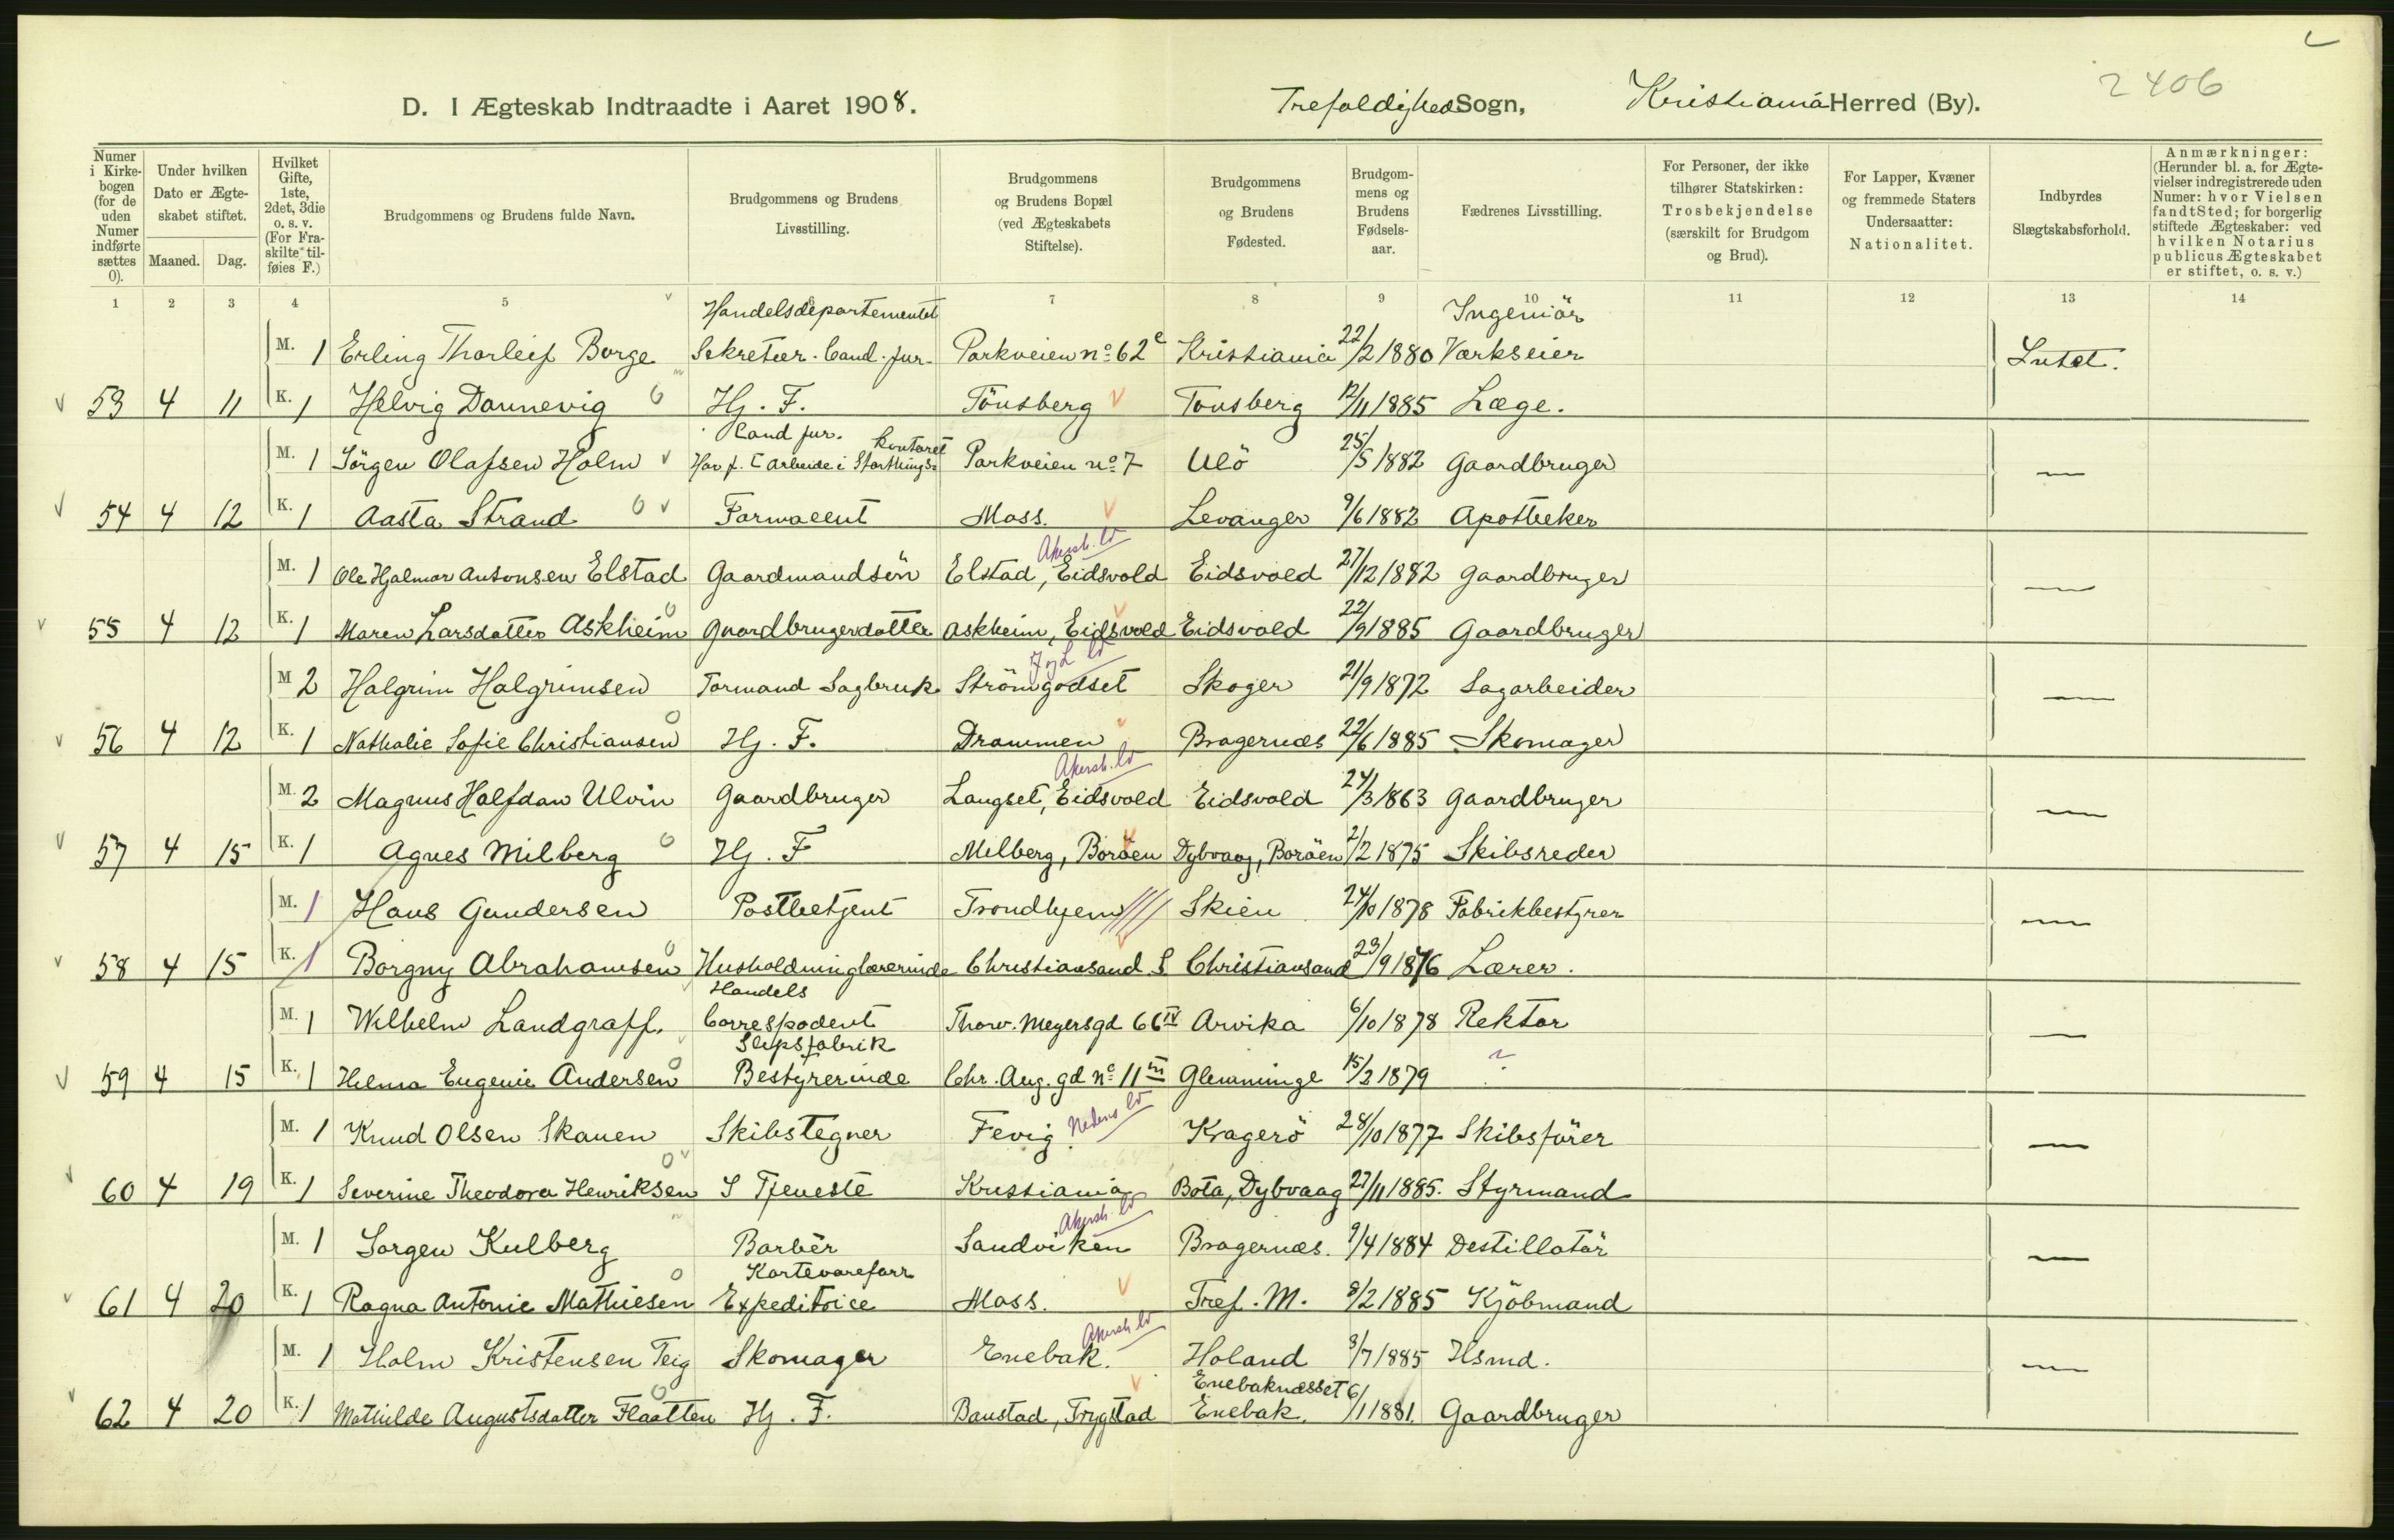 2406
D. I Ægteskab Indtraadte i Aaret 1908. Trefoldighed Sogn, Kristiania Herred (By).
Numer i Kirkebogen (for de uden Numer indførte sættes 0).
Under hvilken Dato er Ægteskabet stiftet.
Maaned. Dag.
Hvilket Gifte, 1ste, 2det, 3die o. s. v. (For Fraskilte tilføies F.)
Brudgommens og Brudens fulde Navn.
Brudgommens og Brudens Livsstilling.
Brudgommens og Brudens Bopæl (ved Ægteskabets Stiftelse).
Brudgommens og Brudens Fødested.
Brudgommens og Brudens Fødselsaar.
Fædrenes Livsstilling.
For Personer, der ikke tilhører Statskirken: Trosbekjendelse (særskilt for Brudgom og Brud).
For Lapper, Kvæner og fremmede Staters Undersaatter: Nationalitet.
Indbyrdes Slægtskabsforhold.
Anmærkninger: (Herunder bl. a. for Ægtevielser indregistrerede uden Numer: hvor Vielsen fandt Sted; for borgerlig stiftede Ægteskaber: ved hvilken Notarius publicus Ægteskabet er stiftet, o. s. v.)
1 2 3 4 5 6 7 8 9 10 11 12 13 14
Handelsdepartementet Ingeniör
M. 1 Erling Thorleif Borge Sekretær. Cand. jur. Parkveien no 62 c Kristiania 22/2 1880 Værkseier Intet.
53 4 11 K. 1 Helvig Dannevig Hj. F. Tönsberg Tonsberg 12/11 1885 Læge.
Cand jur. kontoret
M. 1 Jörgen Olafsen Holm Har f. T arbeide i Storthings- Parkveien no 7 Ulö 25/5 1882 Gaardbruger —
54 4 12 K. 1 Aasta Strand Farmacent Moss. Levanger 9/6 1882 Apotheker
Akersh. lv
M. 1 Ole Hjalmar Antonsen Elstad Gaardmandsön Elstad, Eidsvold Eidsvold 27/12 1882 Gaardbruger —
55 4 12 K. 1 Maren Larsdatter Askheim Gaardbrugerdatter Askheim, Eidsvold Eidsvold 22/9 1885 Gaardbruger
J. og L. lv
M 2 Halgrim Halgrimsen Formand Sagbruk Strömgodset Skoger 21/9 1872 Sagarbeider —
56 4 12 K. 1 Nathalie Sofie Christiansen Hj. F. Drammen Bragernæs 22/6 1885 Skomager
Akersh. lv
M. 2 Magnus Halfdan Ulvin Gaardbruger Langset, Eidsvold Eidsvold 24/3 1863 Gaardbruger —
57 4 15 K. 1 Agnes Milberg Hj. F Milberg, Boröen Dybvaag, Boröen 2/2 1875 Skibsreder
M. 1 Hans Gundersen Postbetjent Trondhjem Skien 24/10 1878 Fabrikbestyrer —
58 4 15 K. 1 Borgny Abrahamsen Husholdninglærerinde Christiansand S Christiansand 23/9 1876 Lærer.
Handels
M. 1 Wilhelm Landgraff. Correspodent Thorv. Meyersgd 66 IV Arvika 6/10 1878 Rektor —
Slipsfabrik
59 4 15 K. 1 Helma Eugenie Andersen Bestyrerinde Chr. Aug. gd no 11 III Glemminge 15/2 1879 ?
Nedenes lv
M. 1 Knud Olsen Skauen Skibstegner Fevig. Kragerö 28/10 1877 Skibsförer —
60 4 19 K. 1 Severine Theodora Henriksen I Tjeneste Kristiania Bota, Dybvaag 27/11 1885. Styrmand
Akersh. lv
M. 1 Jorgen Kulberg Barbér Sandviken Bragernæs. 9/4 1884 Destillatör —
Kortevareforr
61 4 20 K. 1 Ragna Antonie Mathiesen Expeditrice Moss. Tref. M. 8/2 1885 Kjöbmand
Akersh. lv
M. 1 Holm Kristensen Teig Skomager Enebak. Holand 3/7 1885 Hsmd. —
Enebaknæsset
62 4 20 K. 1 Mathilde Augustsdatter Flaatten Hj. F. Baustad, Trygstad Enebak. 6/1 1881. Gaardbruger